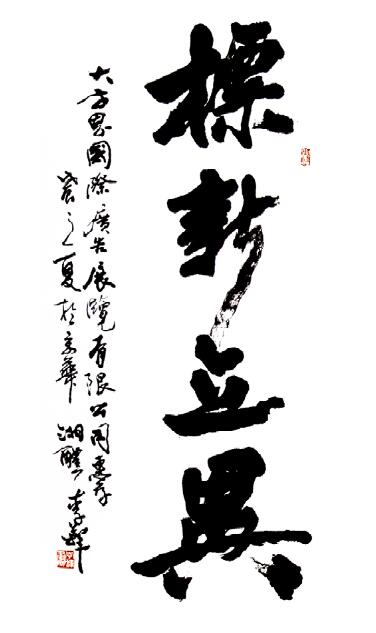 標新立異
大方思國際廣告展覽有限公司惠存
之夏於京華 湘醴 李鐸